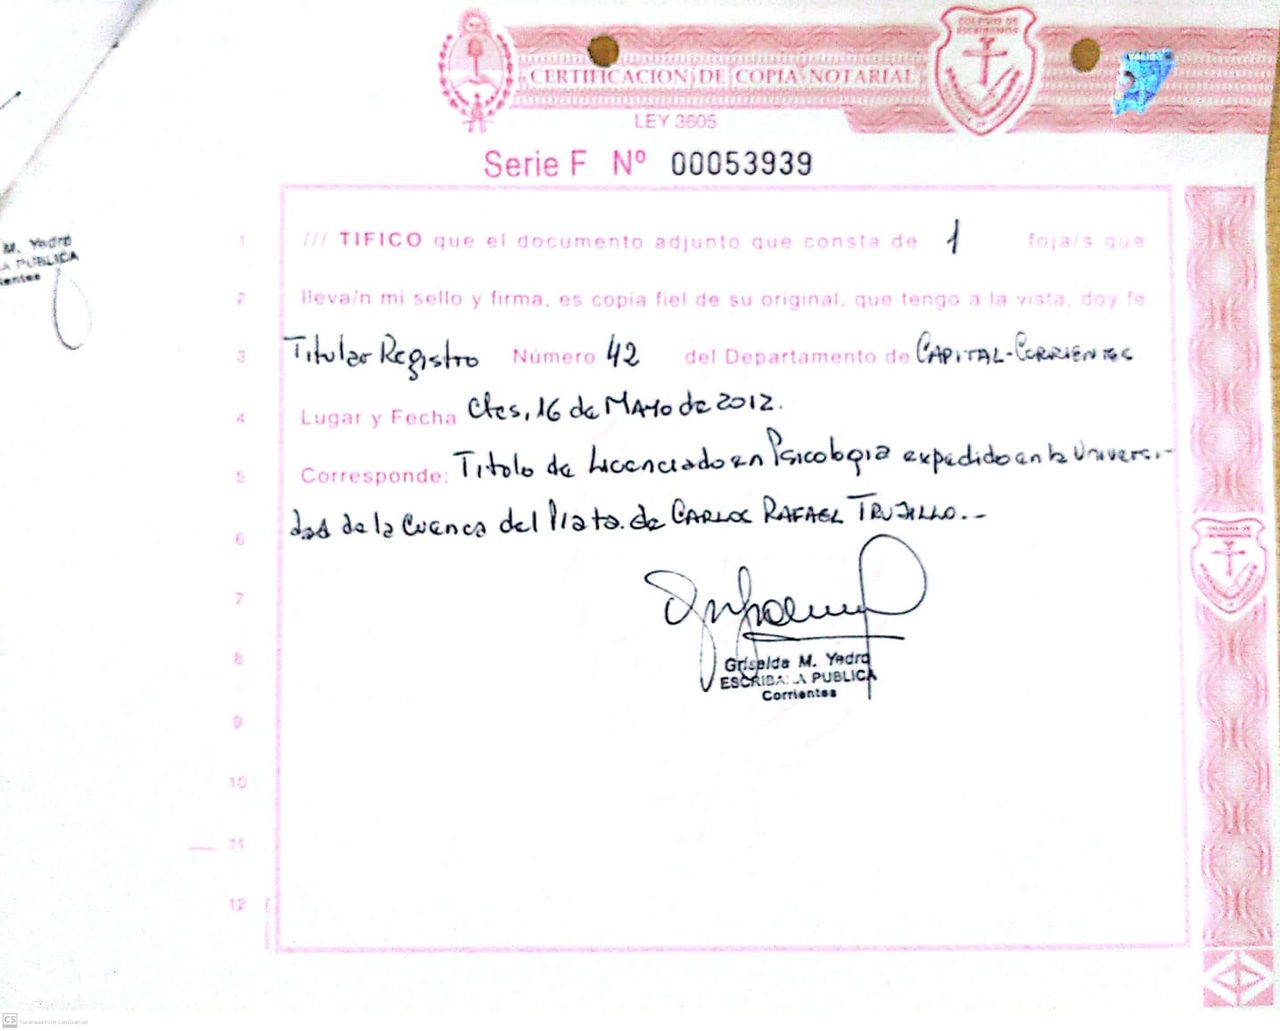 COLEGIO DE
ESCRIBANOS
CERTIFICACION DE COPIA NOTARIAL
LEY 3605
Serie F Nº 00053939
M. Yedro
A PUBLICA
ientes
1 /// TIFICO que el documento adjunto que consta de 1 foja/s que
2 lleva/n mi sello y firma, es copia fiel de su original, que tengo a la vista, doy fe
3 Titular Registro Número 42 del Departamento de CAPITAL-CORRIENTES
4 Lugar y Fecha Ctes, 16 de MAYO de 2012.
5 Corresponde: Titolo de Licenciado en Psicologia expedido en la Universi-
6 dad de la Cuenca del Plata. de CARLOS RAFAEL TRUJILLO.-
7
8
Griselda M. Yedro
ESCRIBANA PUBLICA
Corrientes
9
10
11
12
CS Escaneado con CamScanner